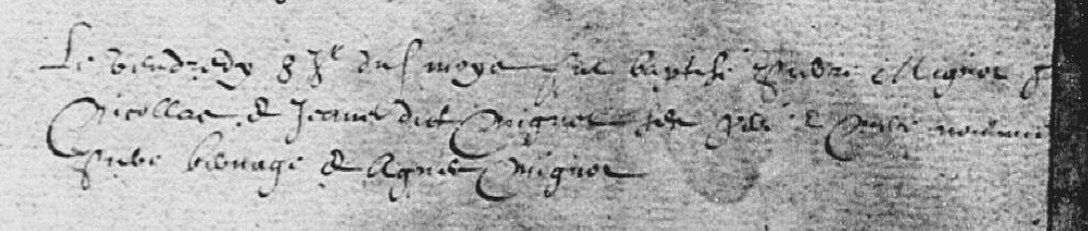 Le vendredy 8 je dud moys fut baptisé Pierre Mignot f
Nicollas & Jeanne dict Mignot ses père & mère nommé
Pierre & Agnes Mignot